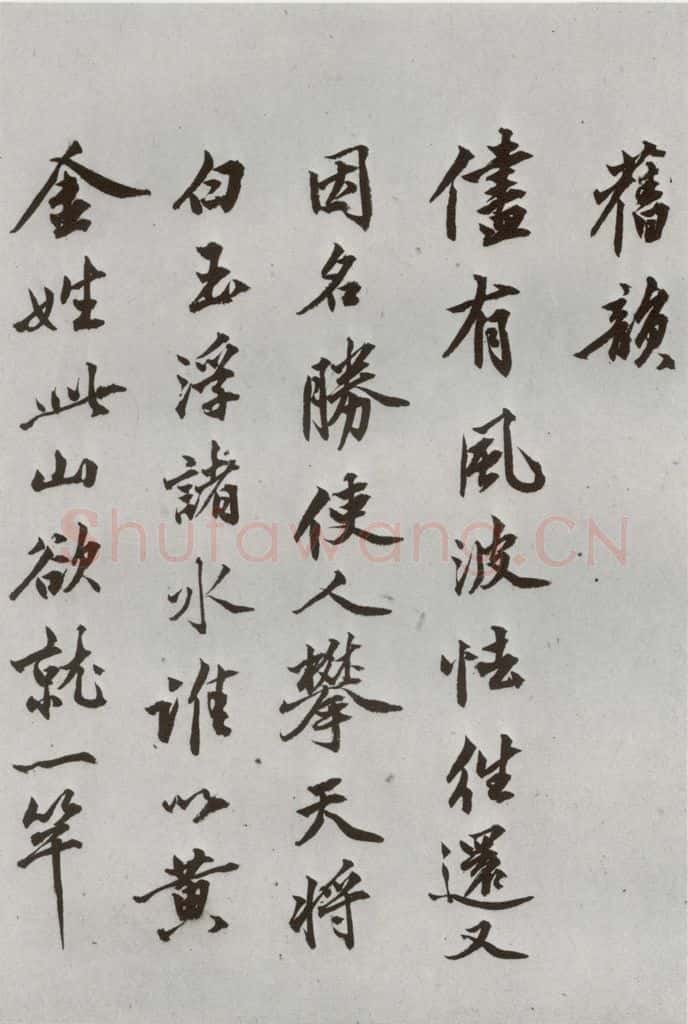 舊韻
儘有風波怯往還又
因名勝使人攀天將
白玉浮諸水誰以黄
金姓此山欲就一竿
Shufawang.CN